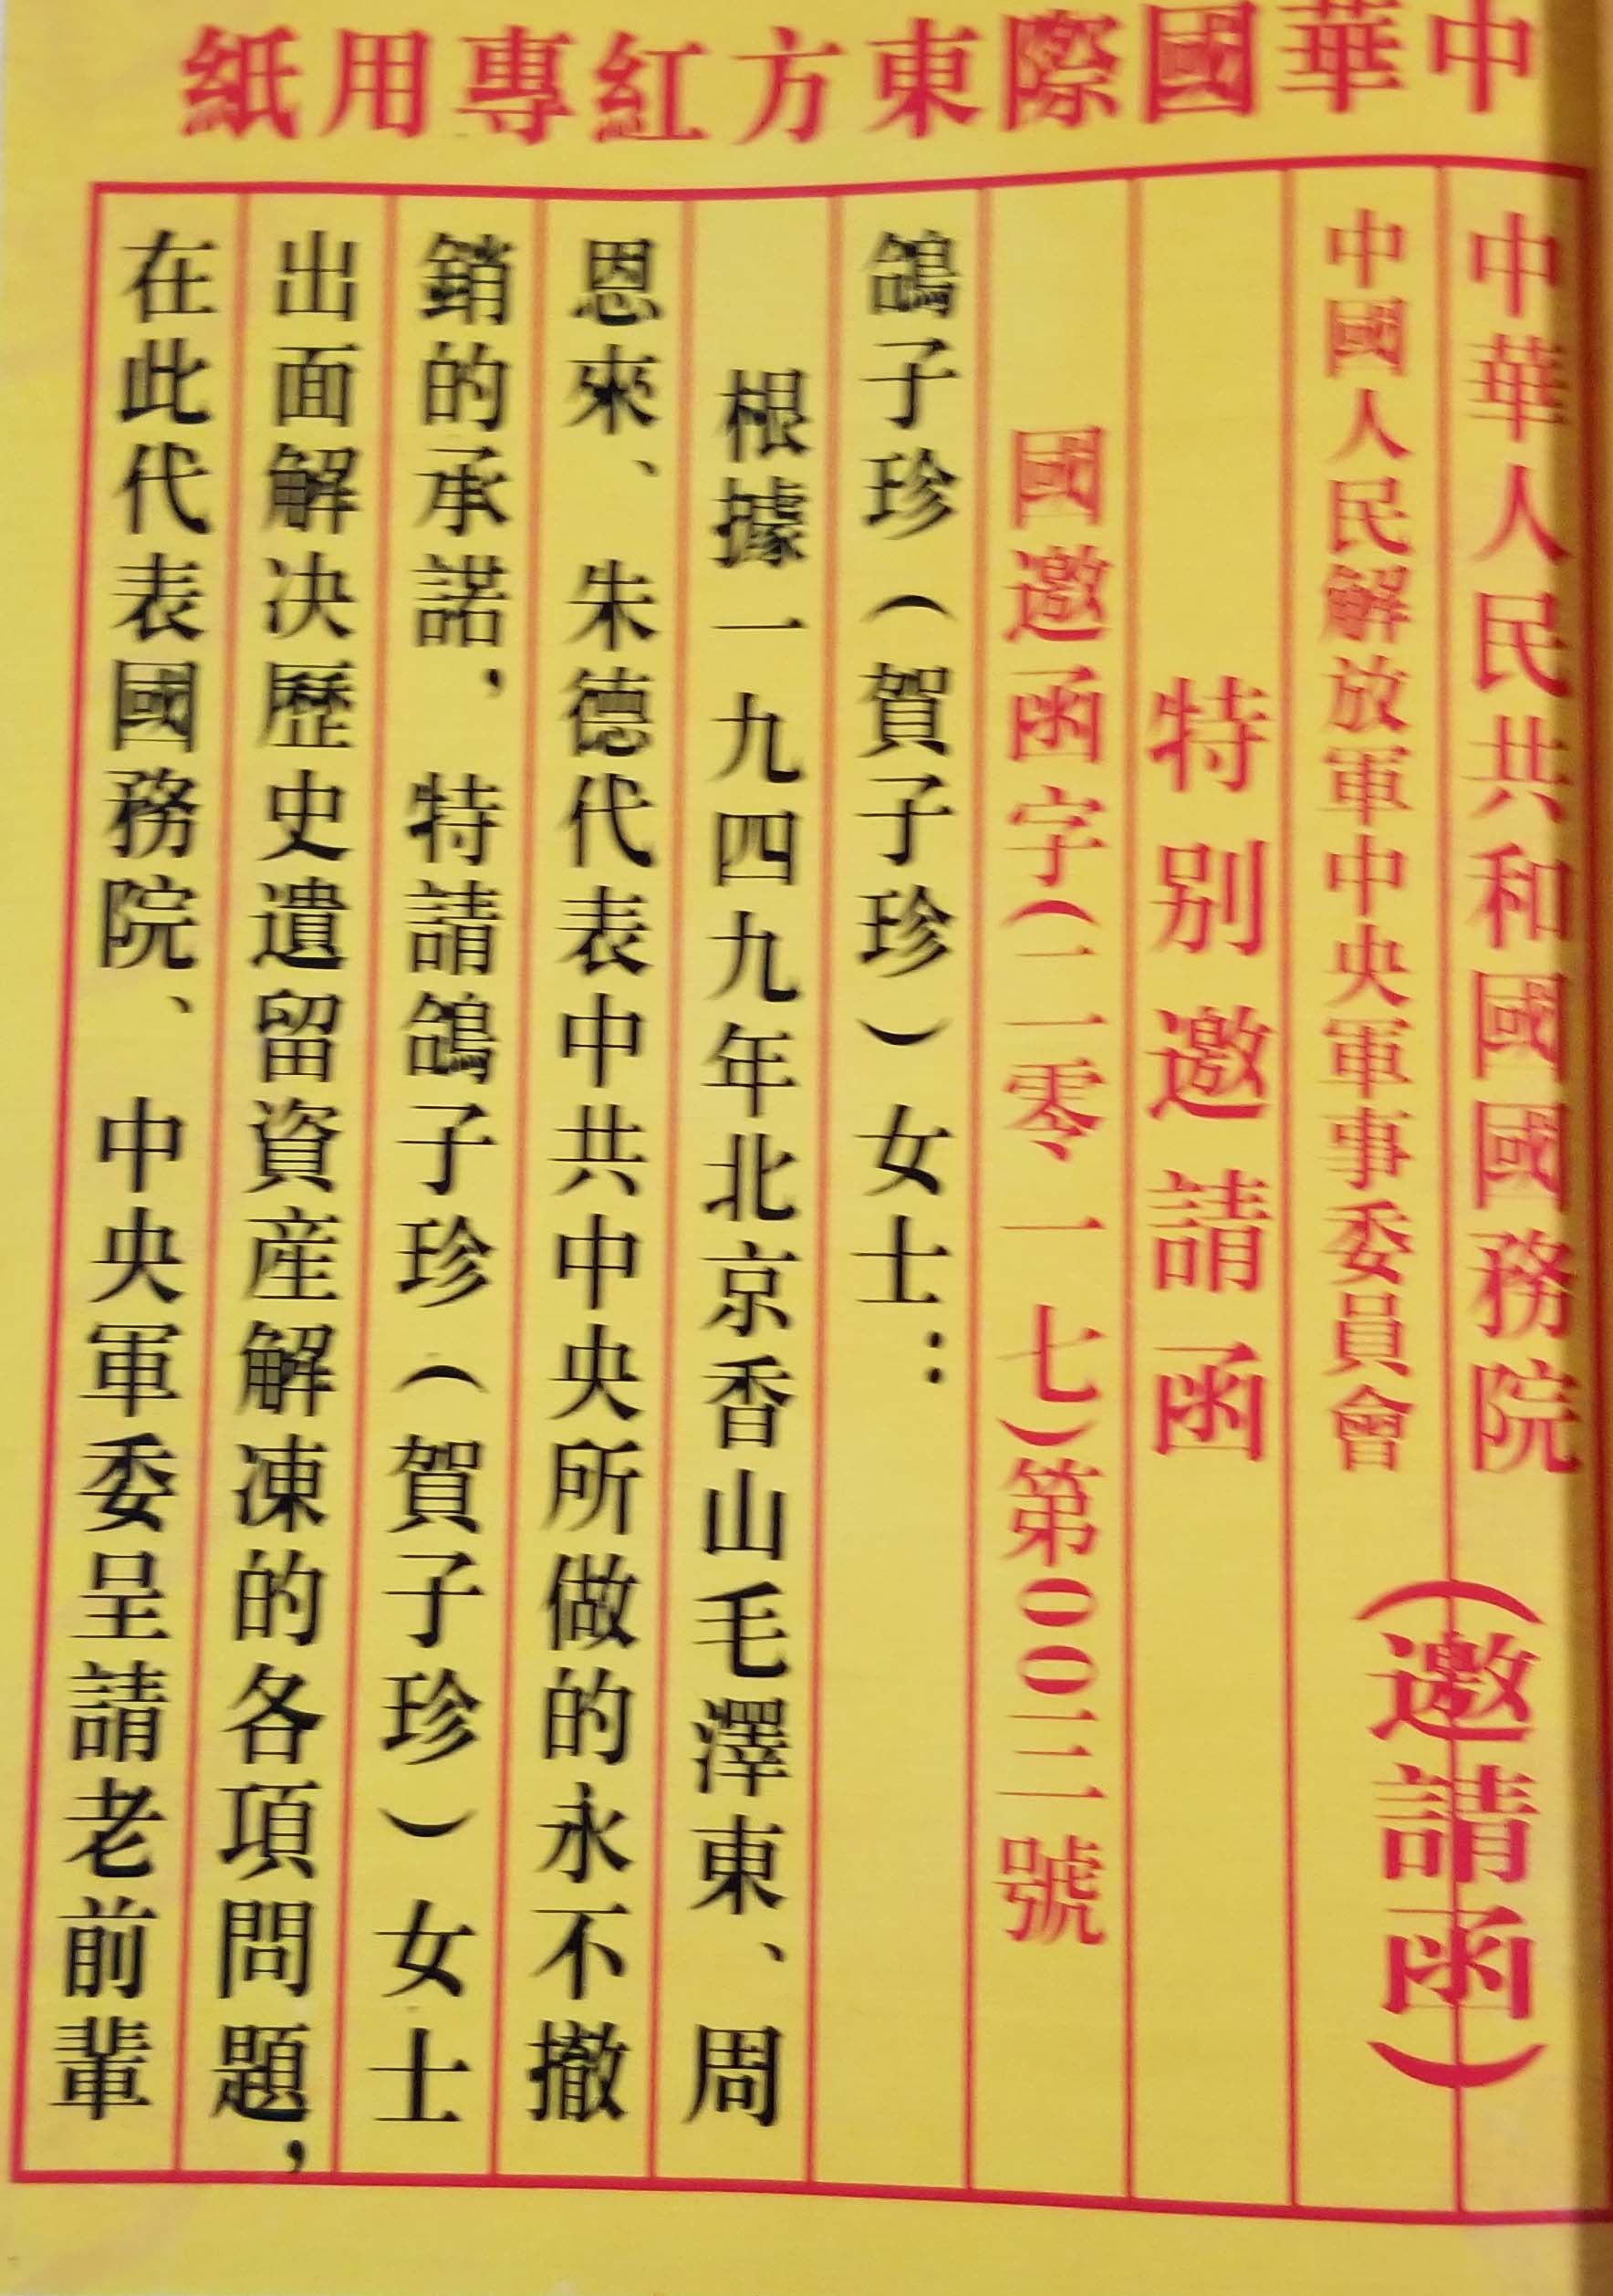 中華國際東方紅專用紙
中華人民共和國國務院
中國人民解放軍中央軍事委員會
（邀請函）
特别邀請函
國邀函字(二零一七)第00三號
鴿子珍（賀子珍）女士：
根據一九四九年北京香山毛澤東、周
恩來、朱德代表中共中央所做的永不撤
銷的承諾，特請鴿子珍（賀子珍）女士
出面解决歷史遺留資産解凍的各項問題，
在此代表國務院、中央軍委呈請老前輩